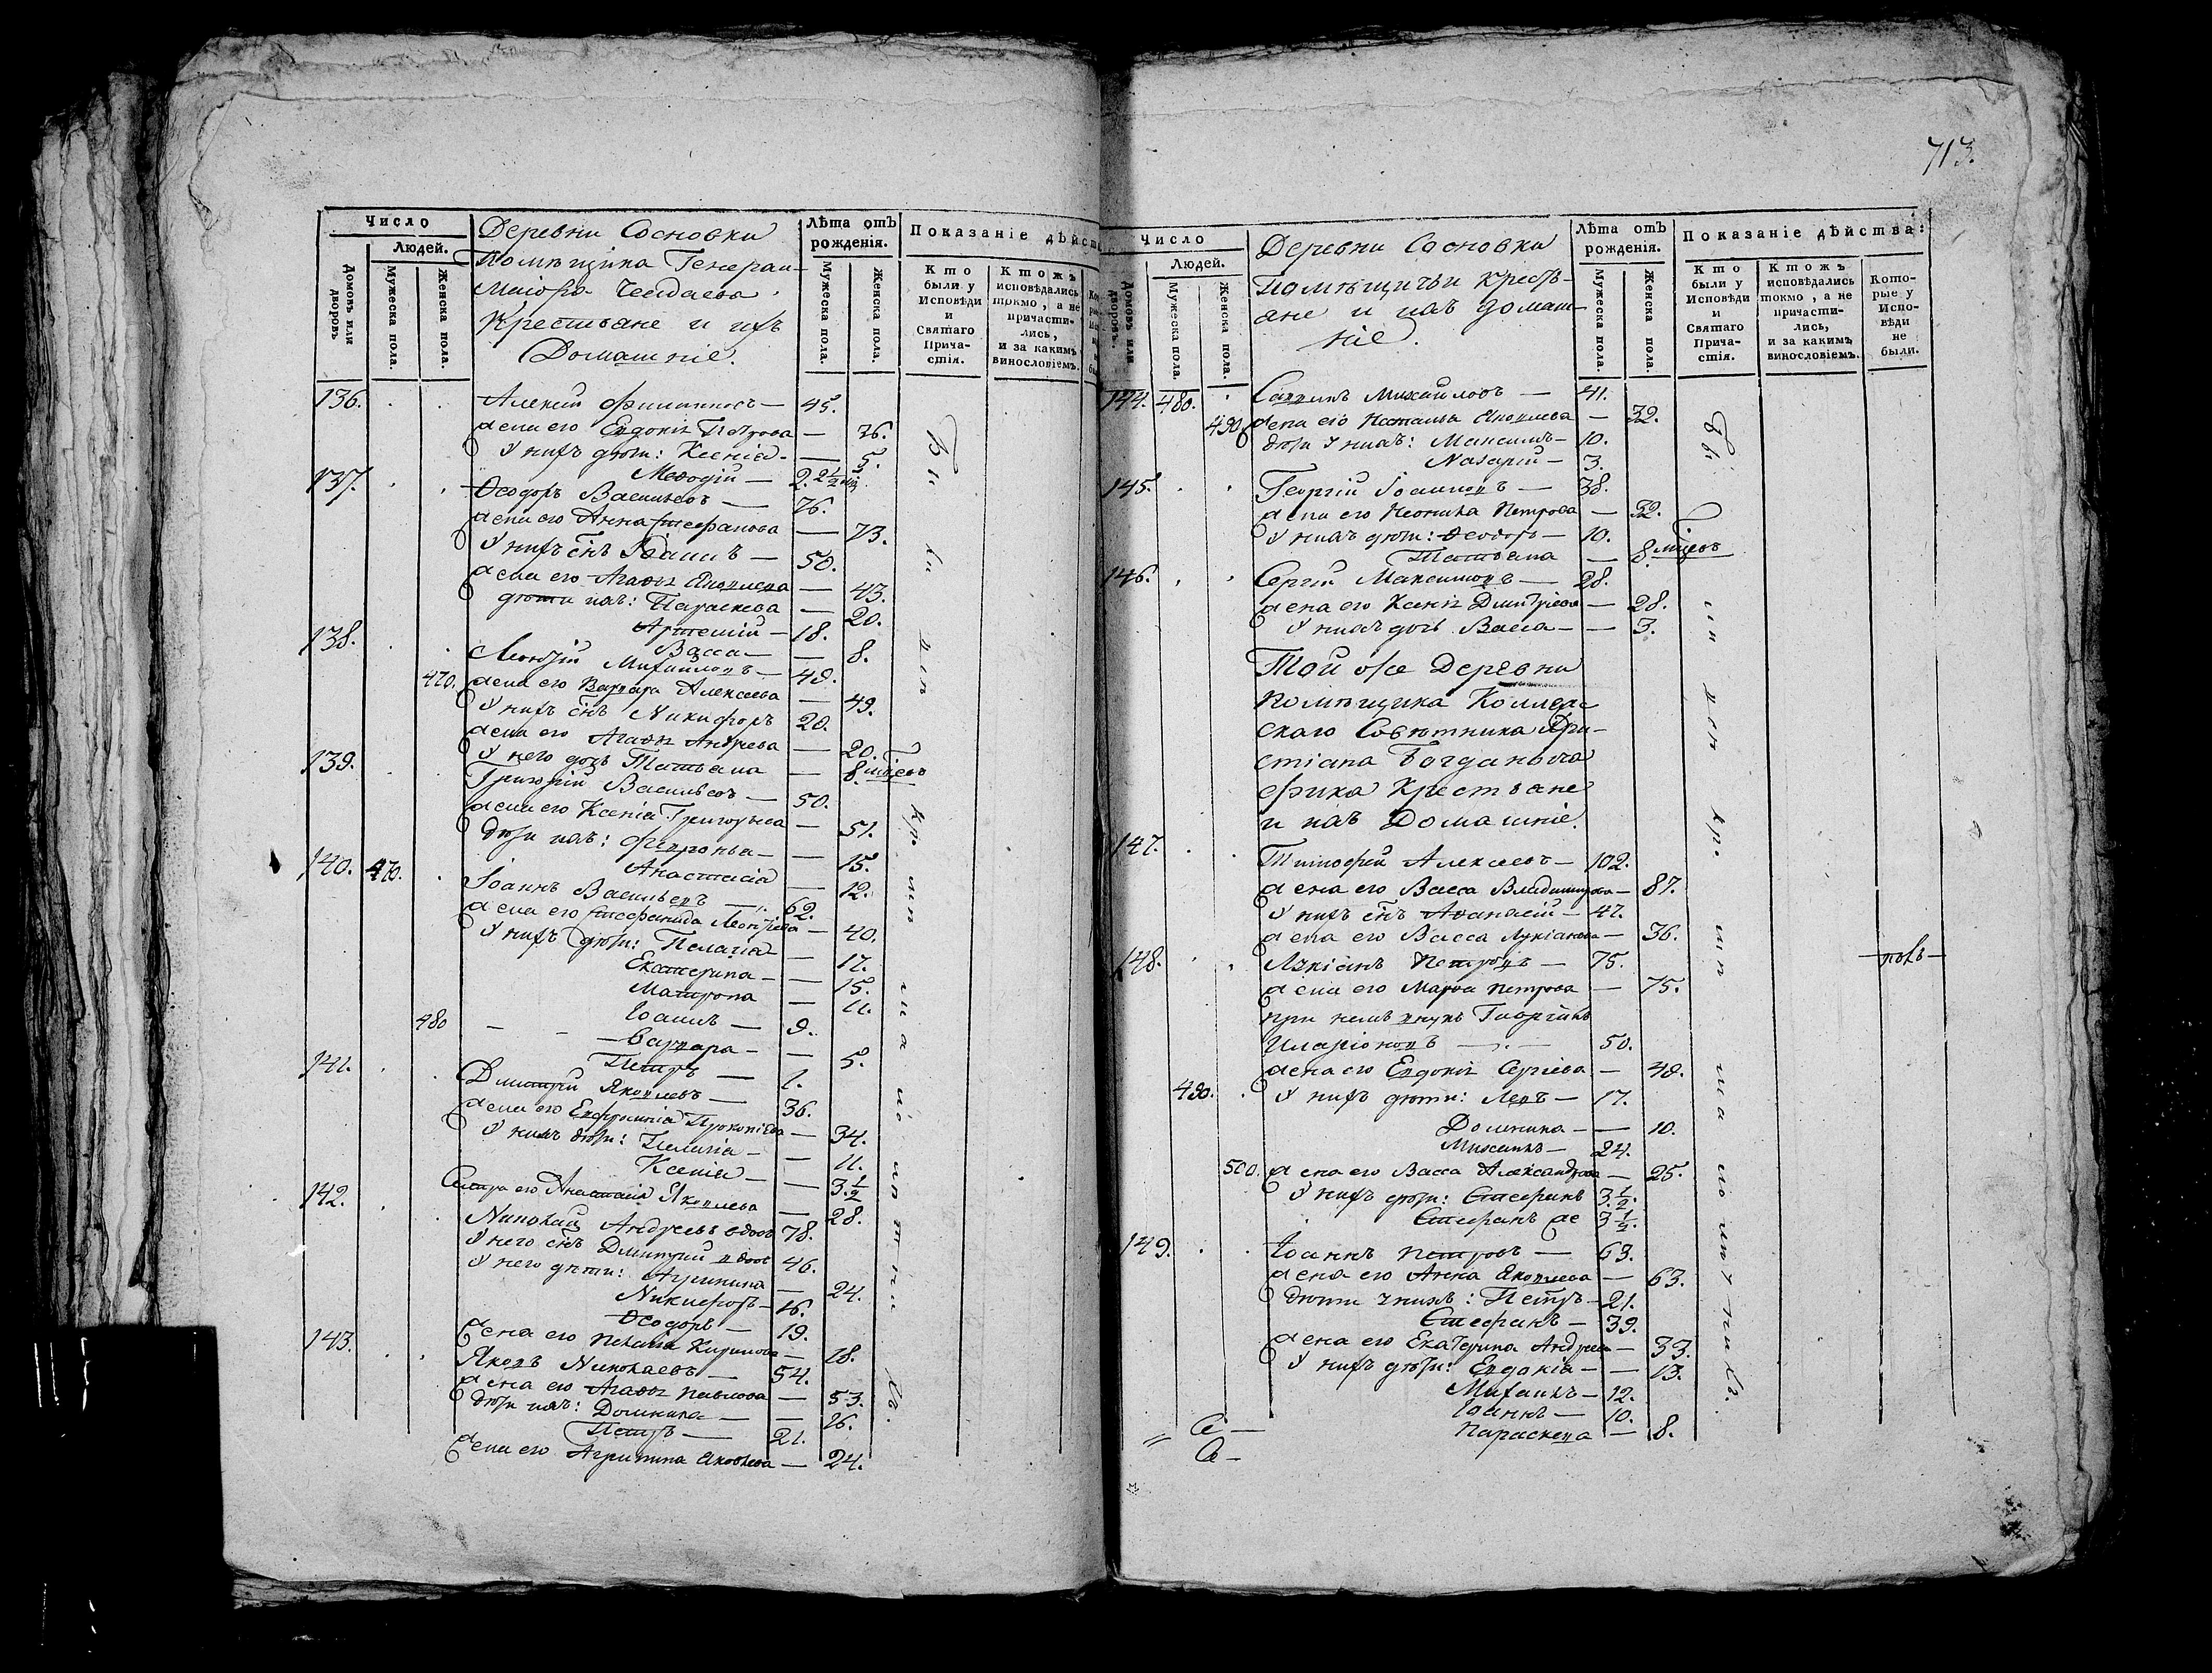 713.
Число
Людей.
Домовъ или дворовъ.
Мужеска пола.
Женска пола.
Деревни Сосновки
Помѣщика Генерал-
Маіора
Крестьяне и ихъ
Домашніе.
Лѣта отъ рожденія.
Мужеска пола.
Женска пола.
Показаніе дѣйст
Кто были у Исповѣди и Святаго Причастія.
Ктожъ исповѣдались токмо, а не причастились, и за какимъ винословіемъ.
136. Алексій Филиппов — 45.
жена его Евдокія Петрова — 36.
У нихъ дѣти: Ксенія — 5.
Меѳодій — 2.
137. Ѳеодоръ Васильевъ — 76.
жена его Анна Стефанова — 73.
У нихъ сн҃ъ Іоаннъ — 50.
жена его Агаѳія Яковлева — 43.
дѣти ихъ: Параскева — 20.
Артемій — 18.
Васса — 8.
138. Леонтій Михайловъ — 48.
470. жена его Варвара Алексеева — 49.
У нихъ сн҃ъ Никифоръ 20.
жена его Агаѳія Андреева — 20.
У него дочь Татьяна — 8. мѣсцовъ
139. Григорій Васильевъ — 50.
жена его Ксенія Григорьева — 51.
дѣти ихъ: Феврон<wbr>ья — 15.
Анастасія — 12.
140. 470. Іоаннъ Васильевъ — 62.
жена его Стефанида Леонтіева — 40.
У нихъ дѣти: Пелагія — 17.
Екатерина — 15.
Матрона — 11.
Іоаннъ — 9.
480 Варвара — 5.
Петръ — 1.
141. Дмитрій Яковлевъ — 36.
жена его Евфиміа Прокопіева — 34.
У нихъ дѣти: Пелагія — 11.
Ксенія — 3 1/2
Сестра его Анастасія Яковлева — 28.
142. Николай Андреевъ вдовъ 78.
У него сн҃ъ Дмитрий вдовъ 46.
У него дѣти: Агрипина — 24.
Никифоръ — 16.
Ѳеодоръ — 19.
жена его Пелагія Кирилова — 18.
143. Яковъ Николаевъ — 54.
жена его Агаѳія Павлова — 53.
дѣти ихъ: Домника — 16.
Петръ — 21.
жена его Агрипина Яковлева — 24.
Число
Людей.
Домовъ или дворовъ.
Мужеска пола.
Женска пола.
Деревни Сосновки
Помѣщичьи крестьяне и ихъ домашніе.
Лѣта отъ рожденія.
Мужеска пола.
Женска пола.
Показаніе дѣйства:
Кто были у Исповѣди и Святаго Причастія.
Ктожъ исповѣдались токмо, а не причастились, и за какимъ винословіемъ.
Которые у Исповѣди не были.
144. 480. Михайловъ — 41.
490. жена его Наталья Яковлева — 32.
дѣти у нихъ: Максимъ — 10.
Назарій — 3.
145. Георгій Іоанновъ — 38.
жена его Неонила Петрова — 32.
У нихъ дѣти: Ѳеодоръ — 10.
Татьяна — 8. мѣсцовъ
146. Сергій Максимовъ — 28.
жена его Ксенія Дмитріева — 28.
У нихъ дочь Васса — 3.
Той же Деревни
помѣщика Коллеж-
скаго Совѣтника Хри-
стіана Богданыча
Фика Крестьяне
и ихъ Домашніе.
147. Тимофей Алексеевъ — 102.
жена его Васса Владимирова — 87.
У нихъ сн҃ъ Аѳанасій — 47.
жена его Васса Лукіанова — 36.
148. Лукіанъ Петровъ — 75.
жена его Марѳа Петрова — 75.
при немъ внукъ Георгій
Иларіоновъ — 50.
жена его Евдокія Сергіева — 48.
490. У нихъ дѣти: Левъ — 17.
Домника — 10.
Михаилъ — 24.
500. жена его Васса Александрова — 25.
У нихъ дѣти: Стефанъ 3 1/2.
Стефанъ же 3 1/2.
149. Іоаннъ Петровъ — 63.
жена его Анна Яковлева — 63.
дѣти у нихъ: Петръ — 21.
Стефанъ — 39.
жена его Екатерина Андреева — 33.
У нихъ дѣти: Евдокія — 13.
Михаилъ — 12.
Іоаннъ — 10.
Параскева — 8.